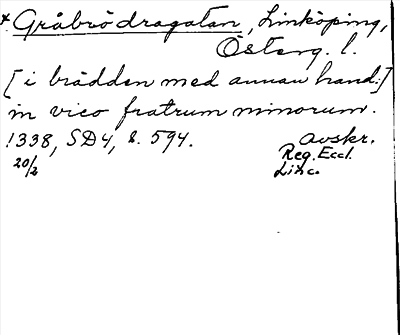 * Gråbrödragatan, Linköping,
Österg. l.
[i brädden med annan hand:]
in vico fratrum minorum.
1338, SD4, s. 594.
20/2
avskr.
Reg. Eccl.
Linc.